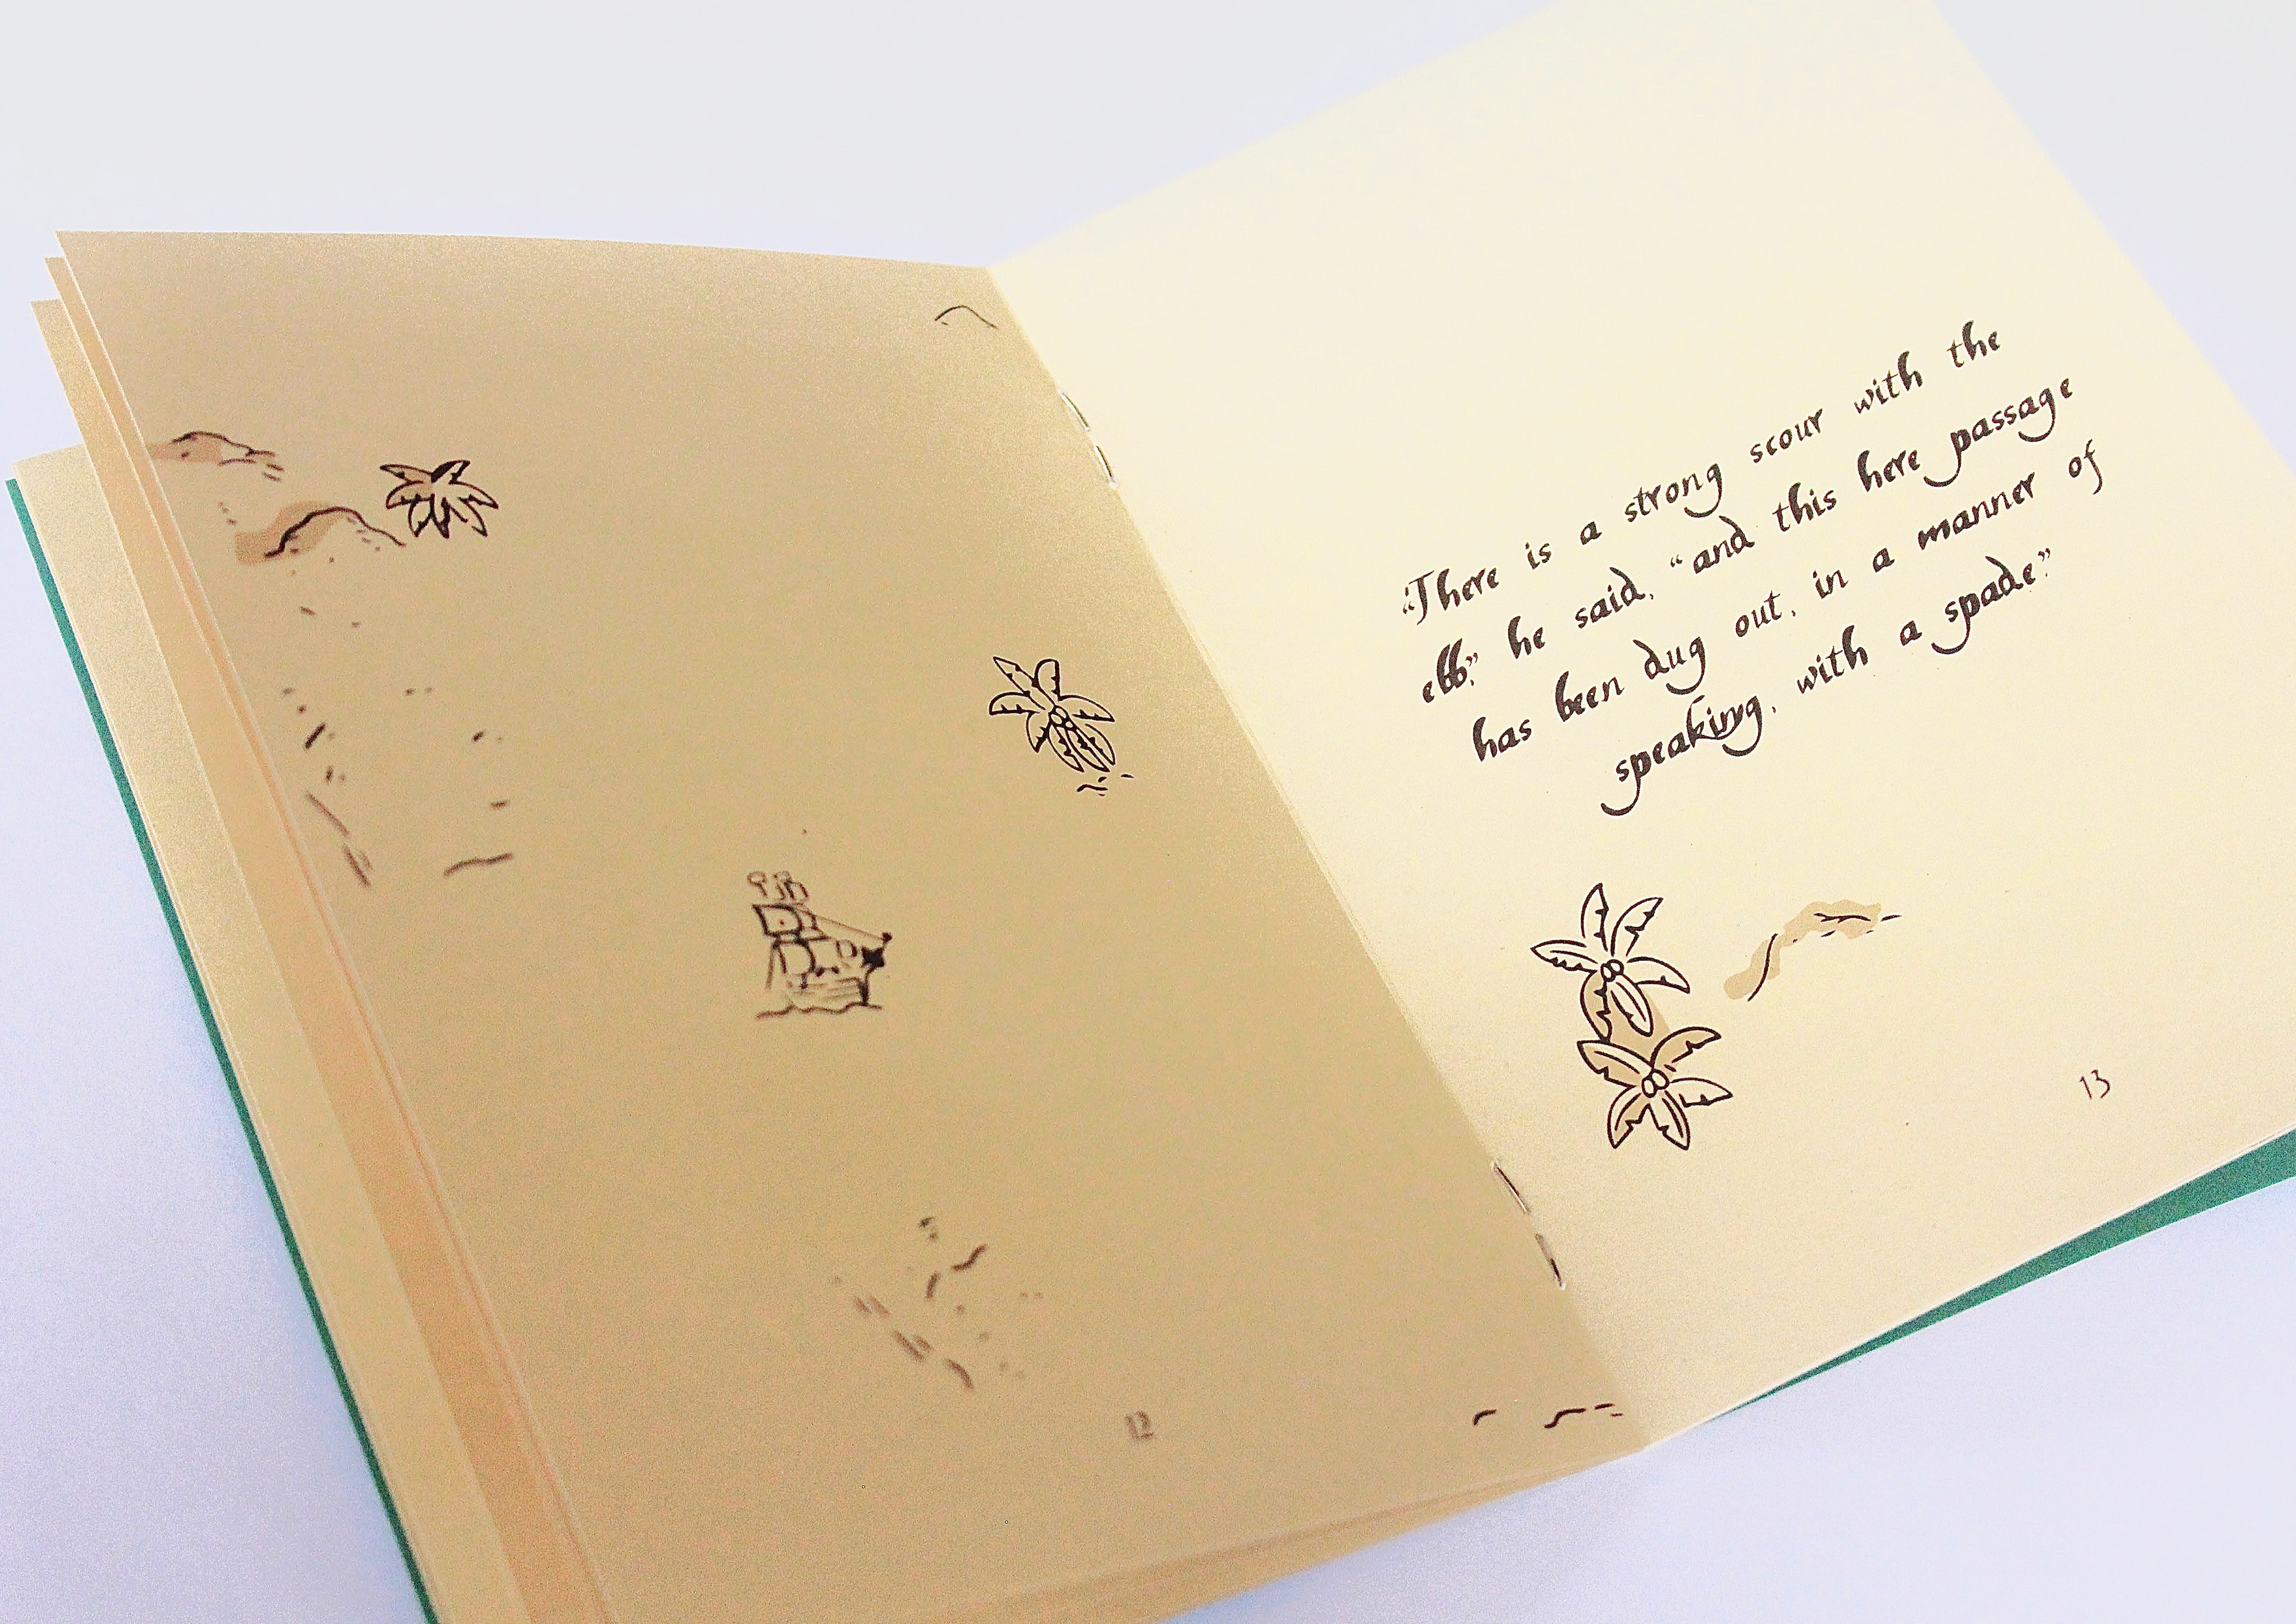 12
“There is a strong scour with the
ebb,” he said, “and this here passage
has been dug out, in a manner of
speaking, with a spade.”
13